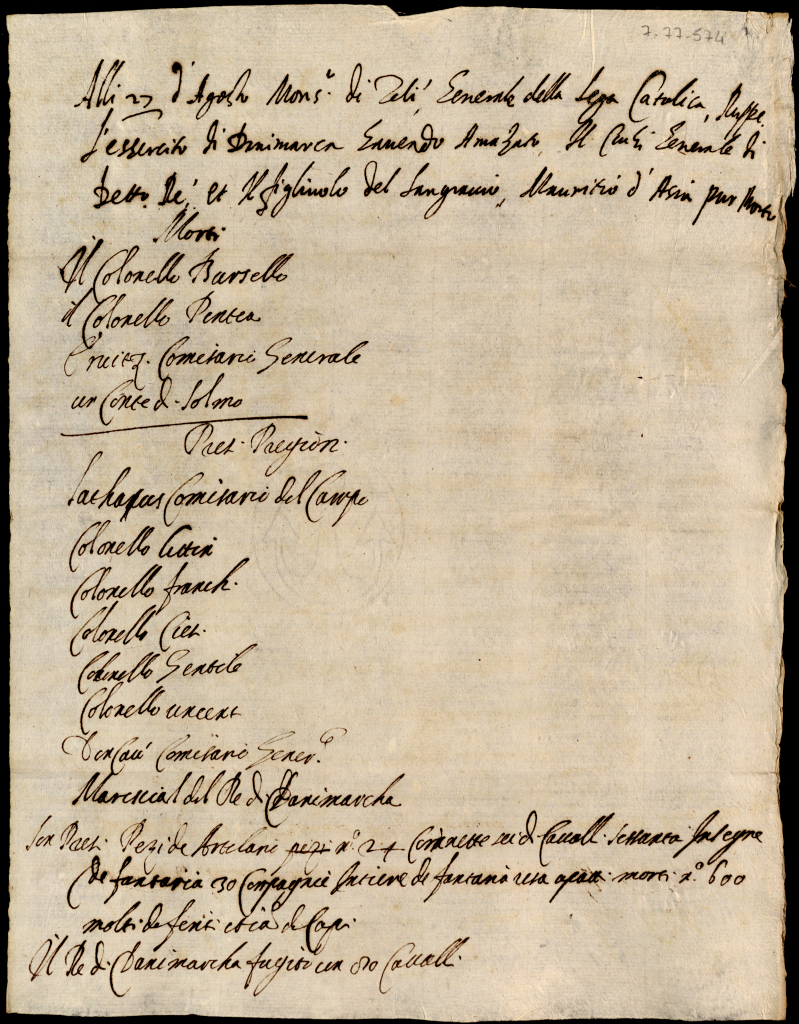 7-77-574
Alli 27 d'Agosto Mons.r di Tili, Generale della Lega Catolica, Ruppe
l'essercito di Danimarca havendo Amazato, Il Generale di
detto Re, et Il figliuolo del Langravio, Mauritio d'Asia pur Morto
Morti
Il Colonello Bursello
il Colonello Pentea
Comisario Generale
un Conte d. Solmo
Pret. Pregion.
Comisario del Campo
Colonello
Colonello franch.
Colonello
Colonello Gentile
Colonello uncent
Comisario Gener.e
Marescial del Re d. Danimarcha
Son Pret. Pezi de Artelaria n.o 24 Cornette di Cavall. sessanta Insegne
de fantaria 30 Compagnie Intiere de fantaria resa a patti morti n.o 600
molti de feriti etia de Capi
Il Re d. Danimarcha fugito con 80 Cavall.